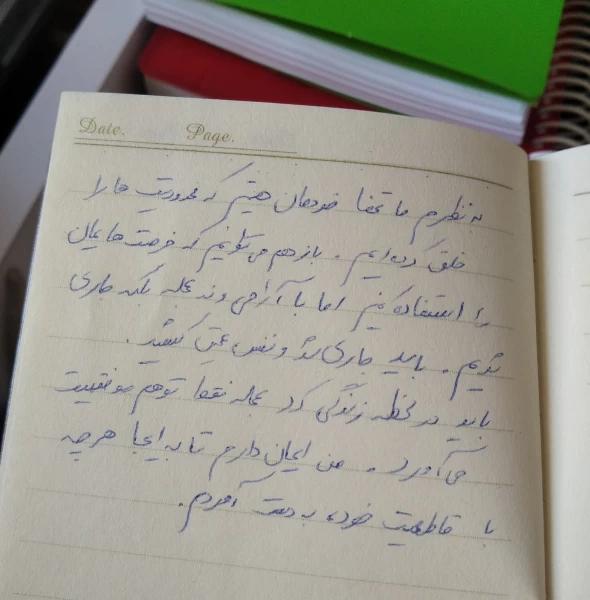 Date. Page.
به نظرم ما تنها خودمان هستیم که محدودیت ها را
خلق کرده ایم. باز هم می توانیم که فرصت هایمان
را استفاده کنیم اما با آرامی و نه عجله بلکه جاری
شویم. باید جاری شد و نفس عمیق کشید.
باید در لحظه زندگی کرد عجله فقط توهم موفقیت
می آورد. من ایمان دارم تا به اینجا هرچه
با قاطعیت خودم به دست آوردم.